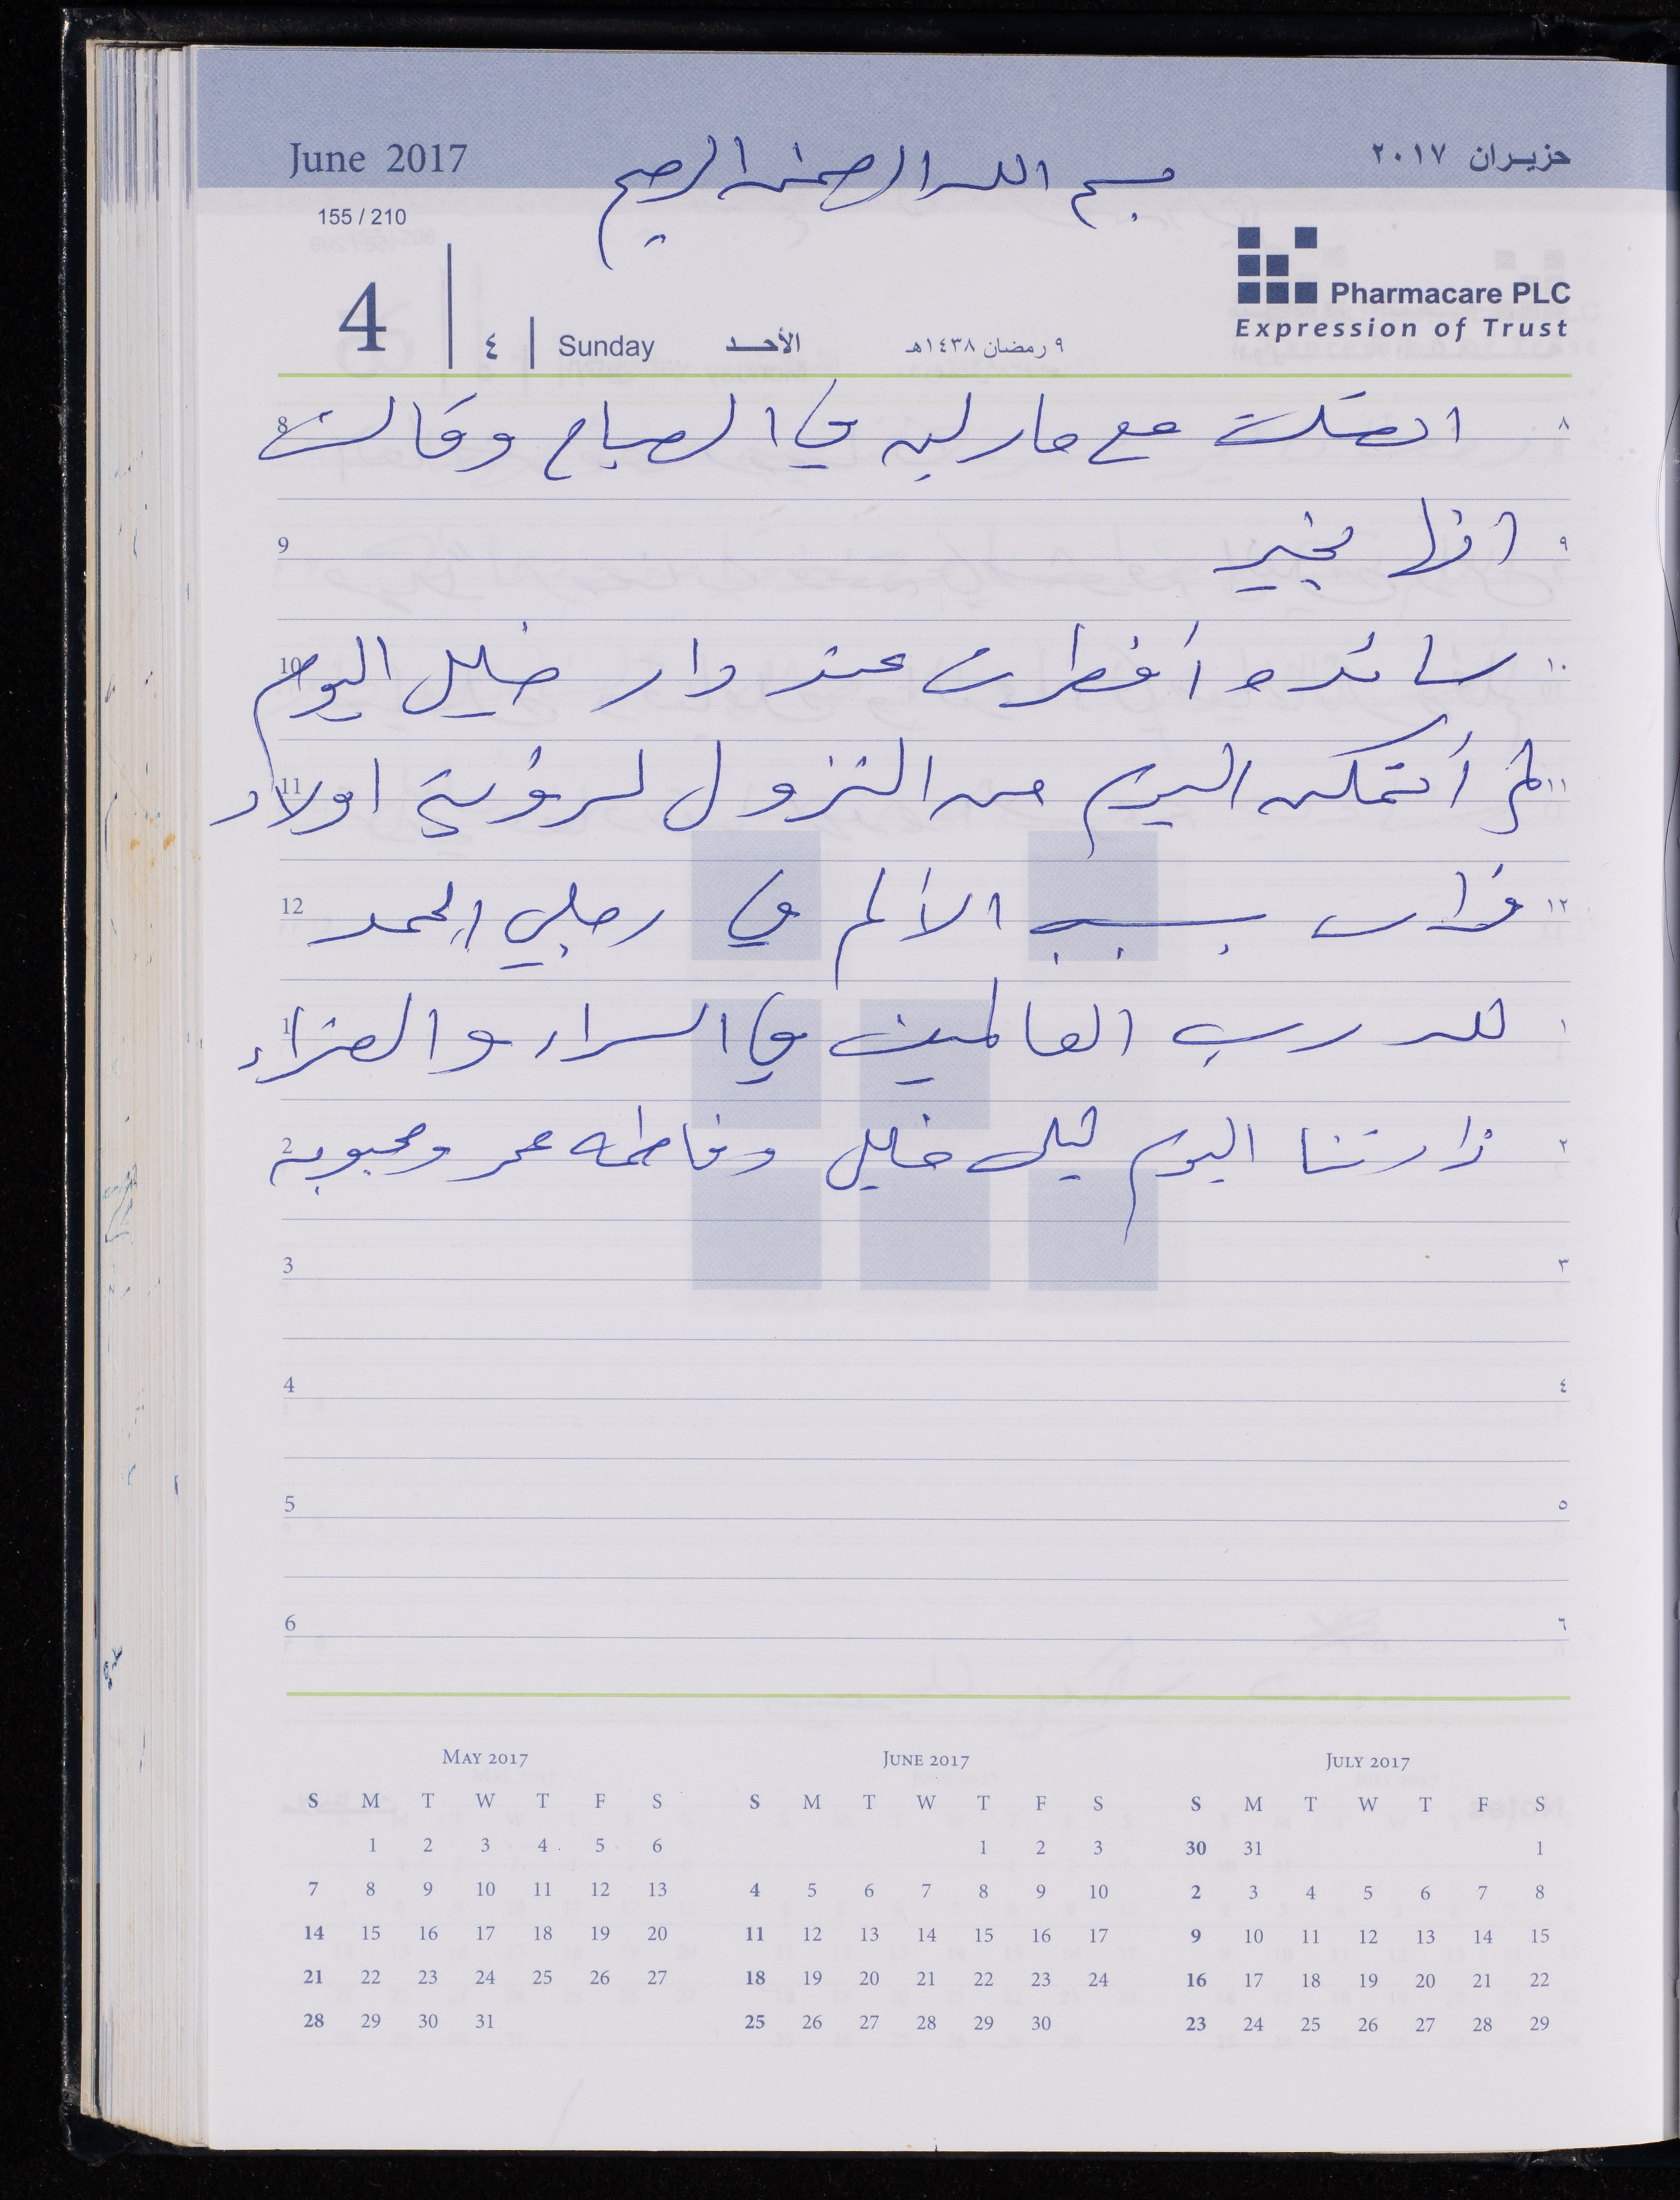 June 2017
بسم الله الرحمن الرحيم
حزيران ٢٠١٧
155 / 210
Pharmacare PLC
Expression of Trust
4 ٤ Sunday الأحد ٩ رمضان ١٤٣٨هـ
8 اتصلت مع مارلين في الصباح وقالت ٨
9 انها بخير ٩
10 سائده و أفطرت عند دار خليل اليوم ١٠
11 لم أتمكن اليوم من النزول لرؤية اولاد ١١
12 فؤاد بسبب الألم في رجلي الحمد ١٢
1 لله رب العالمين في السراء والضراء ١
2 زارتنا اليوم ليلى خليل وفاطمه عمر ومحبوبه ٢
3 ٣
4 ٤
5 ٥
6 ٦
MAY 2017
S M T W T F S
1 2 3 4 5 6
7 8 9 10 11 12 13
14 15 16 17 18 19 20
21 22 23 24 25 26 27
28 29 30 31
JUNE 2017
S M T W T F S
1 2 3
4 5 6 7 8 9 10
11 12 13 14 15 16 17
18 19 20 21 22 23 24
25 26 27 28 29 30
JULY 2017
S M T W T F S
30 31 1
2 3 4 5 6 7 8
9 10 11 12 13 14 15
16 17 18 19 20 21 22
23 24 25 26 27 28 29